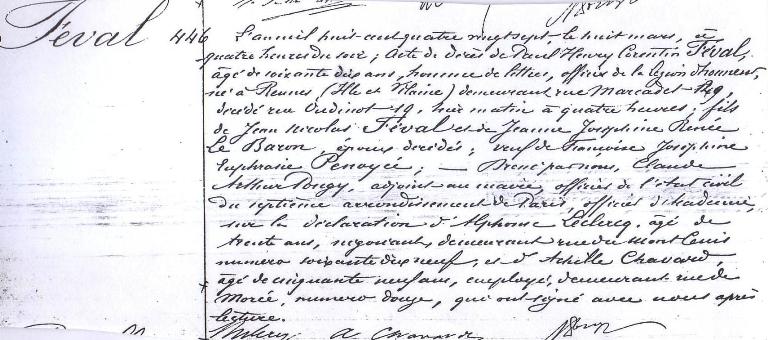 Féval 446 L'an mil huit cent quatre vingt sept le huit mars, à
quatre heures du soir; Acte de décès de Paul Henry Corentin Féval,
âgé de soixante dix ans, homme de lettres, officier de la légion d'honneur,
né à Rennes (Ille et Vilaine) demeurant rue Marcadet
décédé rue Oudinot 19, hier matin à quatre heures; fils
de Jean Nicolas Féval et de Jeanne Joséphine Renée
Le Baron, époux décédés; veuf de Françoise Joséphine
Euphrasie Penoyée; — Dressé par nous, Claude
Arthur Pougy, adjoint au maire, officier de l'état civil
du septième arrondissement de Paris, officier d'académie,
sur la déclaration d'Alphonse Leclercq, âgé de
trente ans, négociant, demeurant rue du Mont Cenis
numéro soixante dix neuf, et d'Achille Chavard,
âgé de cinquante neuf ans, employé, demeurant rue de
Morée, numéro douze, qui ont signé avec nous après
lecture.
A Chavard